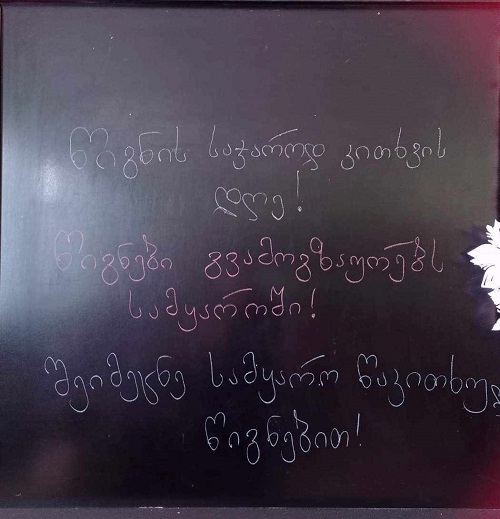 წიგნის საჯაროდ კითხვის
დღე!
წიგნები გვამოგზაურებს
სამყაროში!
შეიმეცნე სამყარო წაკითხულ
წიგნებით!